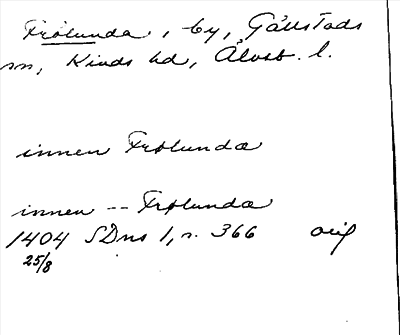 Frölunda, by, Gällstads
sn, Kinds hd, Älvsb. l.
innen Frølunda
innen -- Frølunda
1404 SDns 1, s. 366 orig
25/8